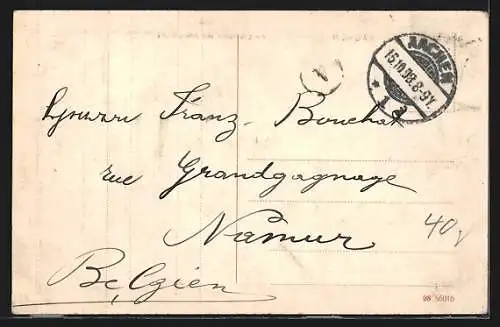 AACHEN
15.10.98. 8-9V.
* 1 *
Herrn Franz Bouchat
rue Grandgagnage
Namur
Belgien
40,
98 56016